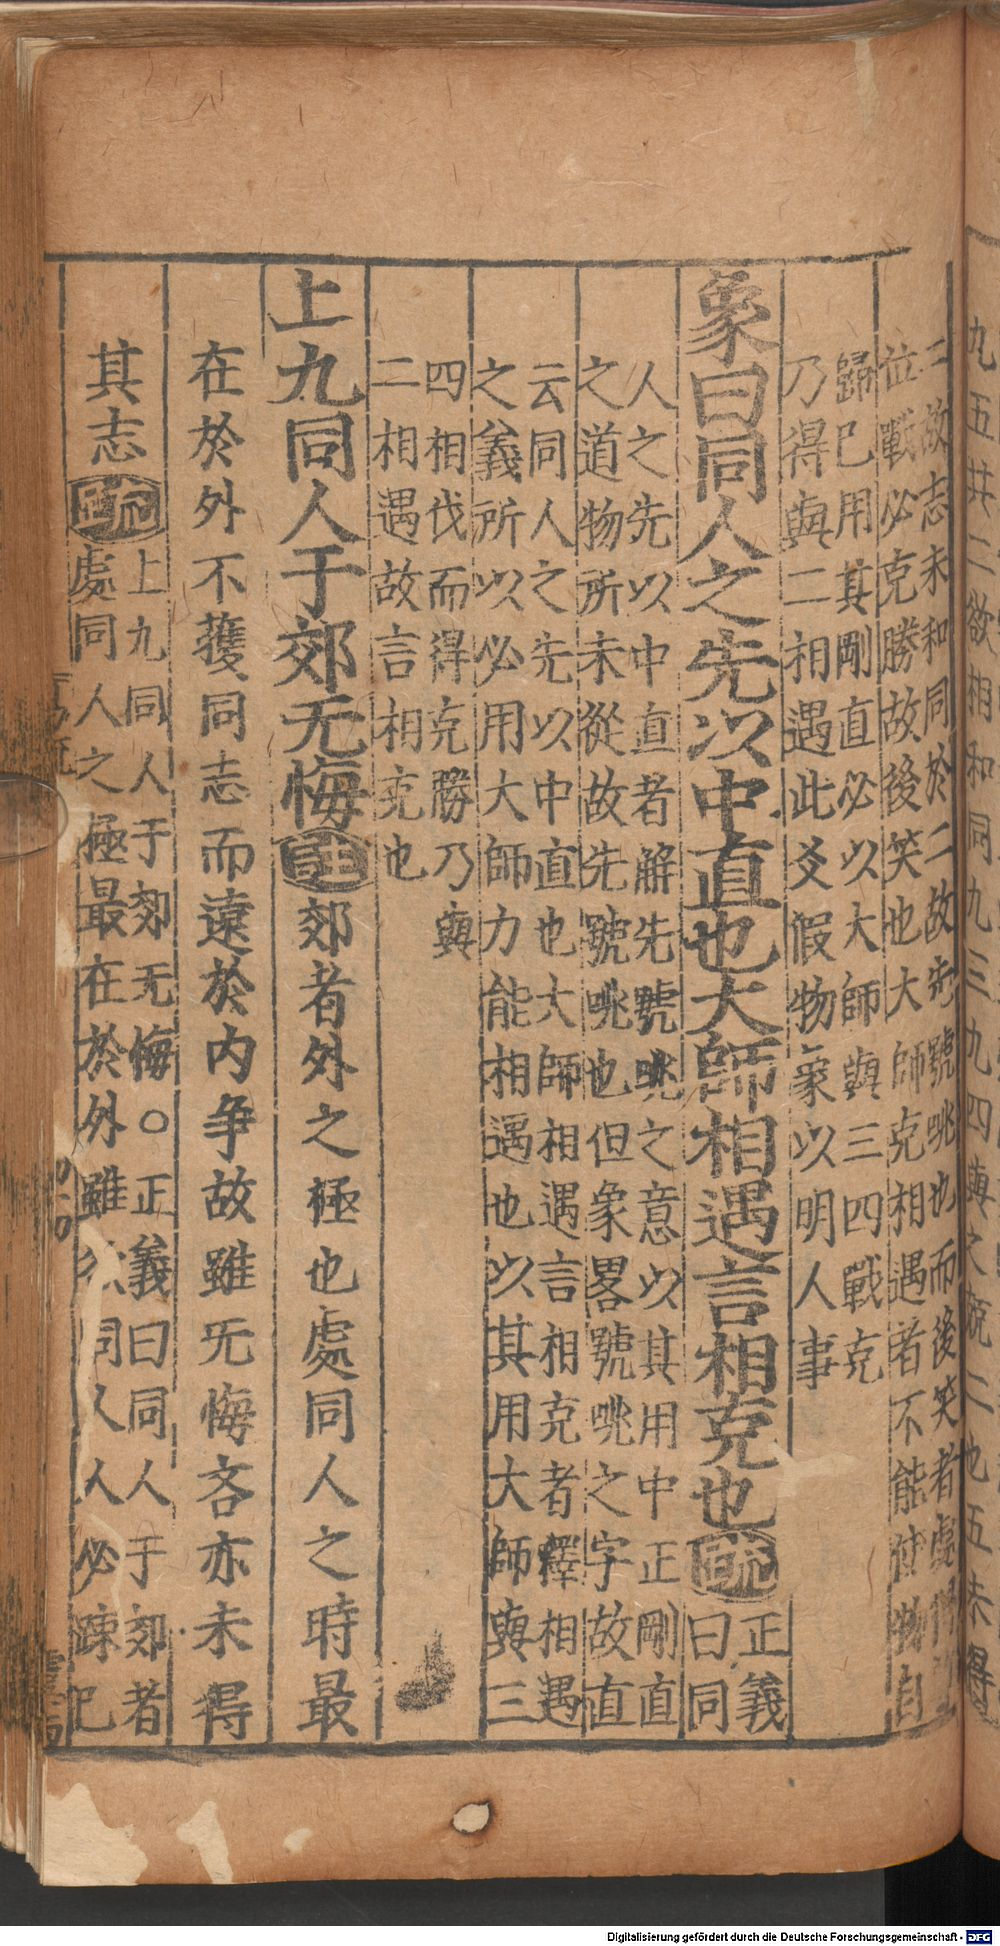 九五共二欲相和同九三九四與之競二也五未得
二故志未和同於二故先號咷也而後笑者處
位戰必克勝故後笑也大師克相遇者不能使物自
歸己用其剛直必以大師與三四戰克
乃得與二相遇此爻假物象以明人事
象曰同人之先以中直也大師相遇言相克也疏
正義
曰同
人之先以中直者解先號咷之意以其用中正剛直
之道物所未從故先號咷也但象畧號咷之字故直
云同人之先以中直也大師相遇言相克者釋相遇
之義所以必用大師力能相遇也以其用大師與三
四相伐而得克勝乃與
二相遇故言相克也
上九同人于郊无悔註郊者外之極也處同人之時最
在於外不獲同志而遠於内争故雖旡悔吝亦未得
其志疏
上九同人于郊无悔○正義曰同人于郊者
處同人之極最在於外雖欲同人人必疎己
Digitalisierung gefördert durch die Deutsche Forschungsgemeinschaft - DFG